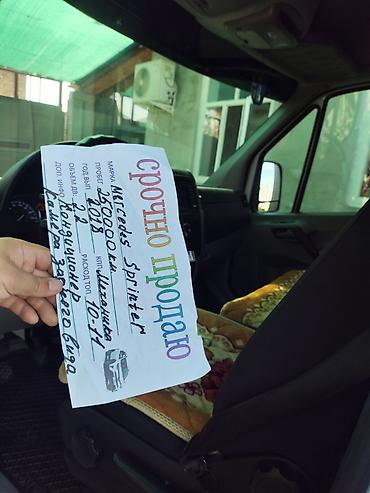 срочно продаю
МАРКА Mercedes Sprinter
ГОД ВЫП. 2018 КПП Механика
ПРОБЕГ 250.000 км
ОБЪЕМ ДВ. 2.2 РАСХОД ТОП. 10-11
ДОП. ИНФО Кондиционер
Камера заднего вида